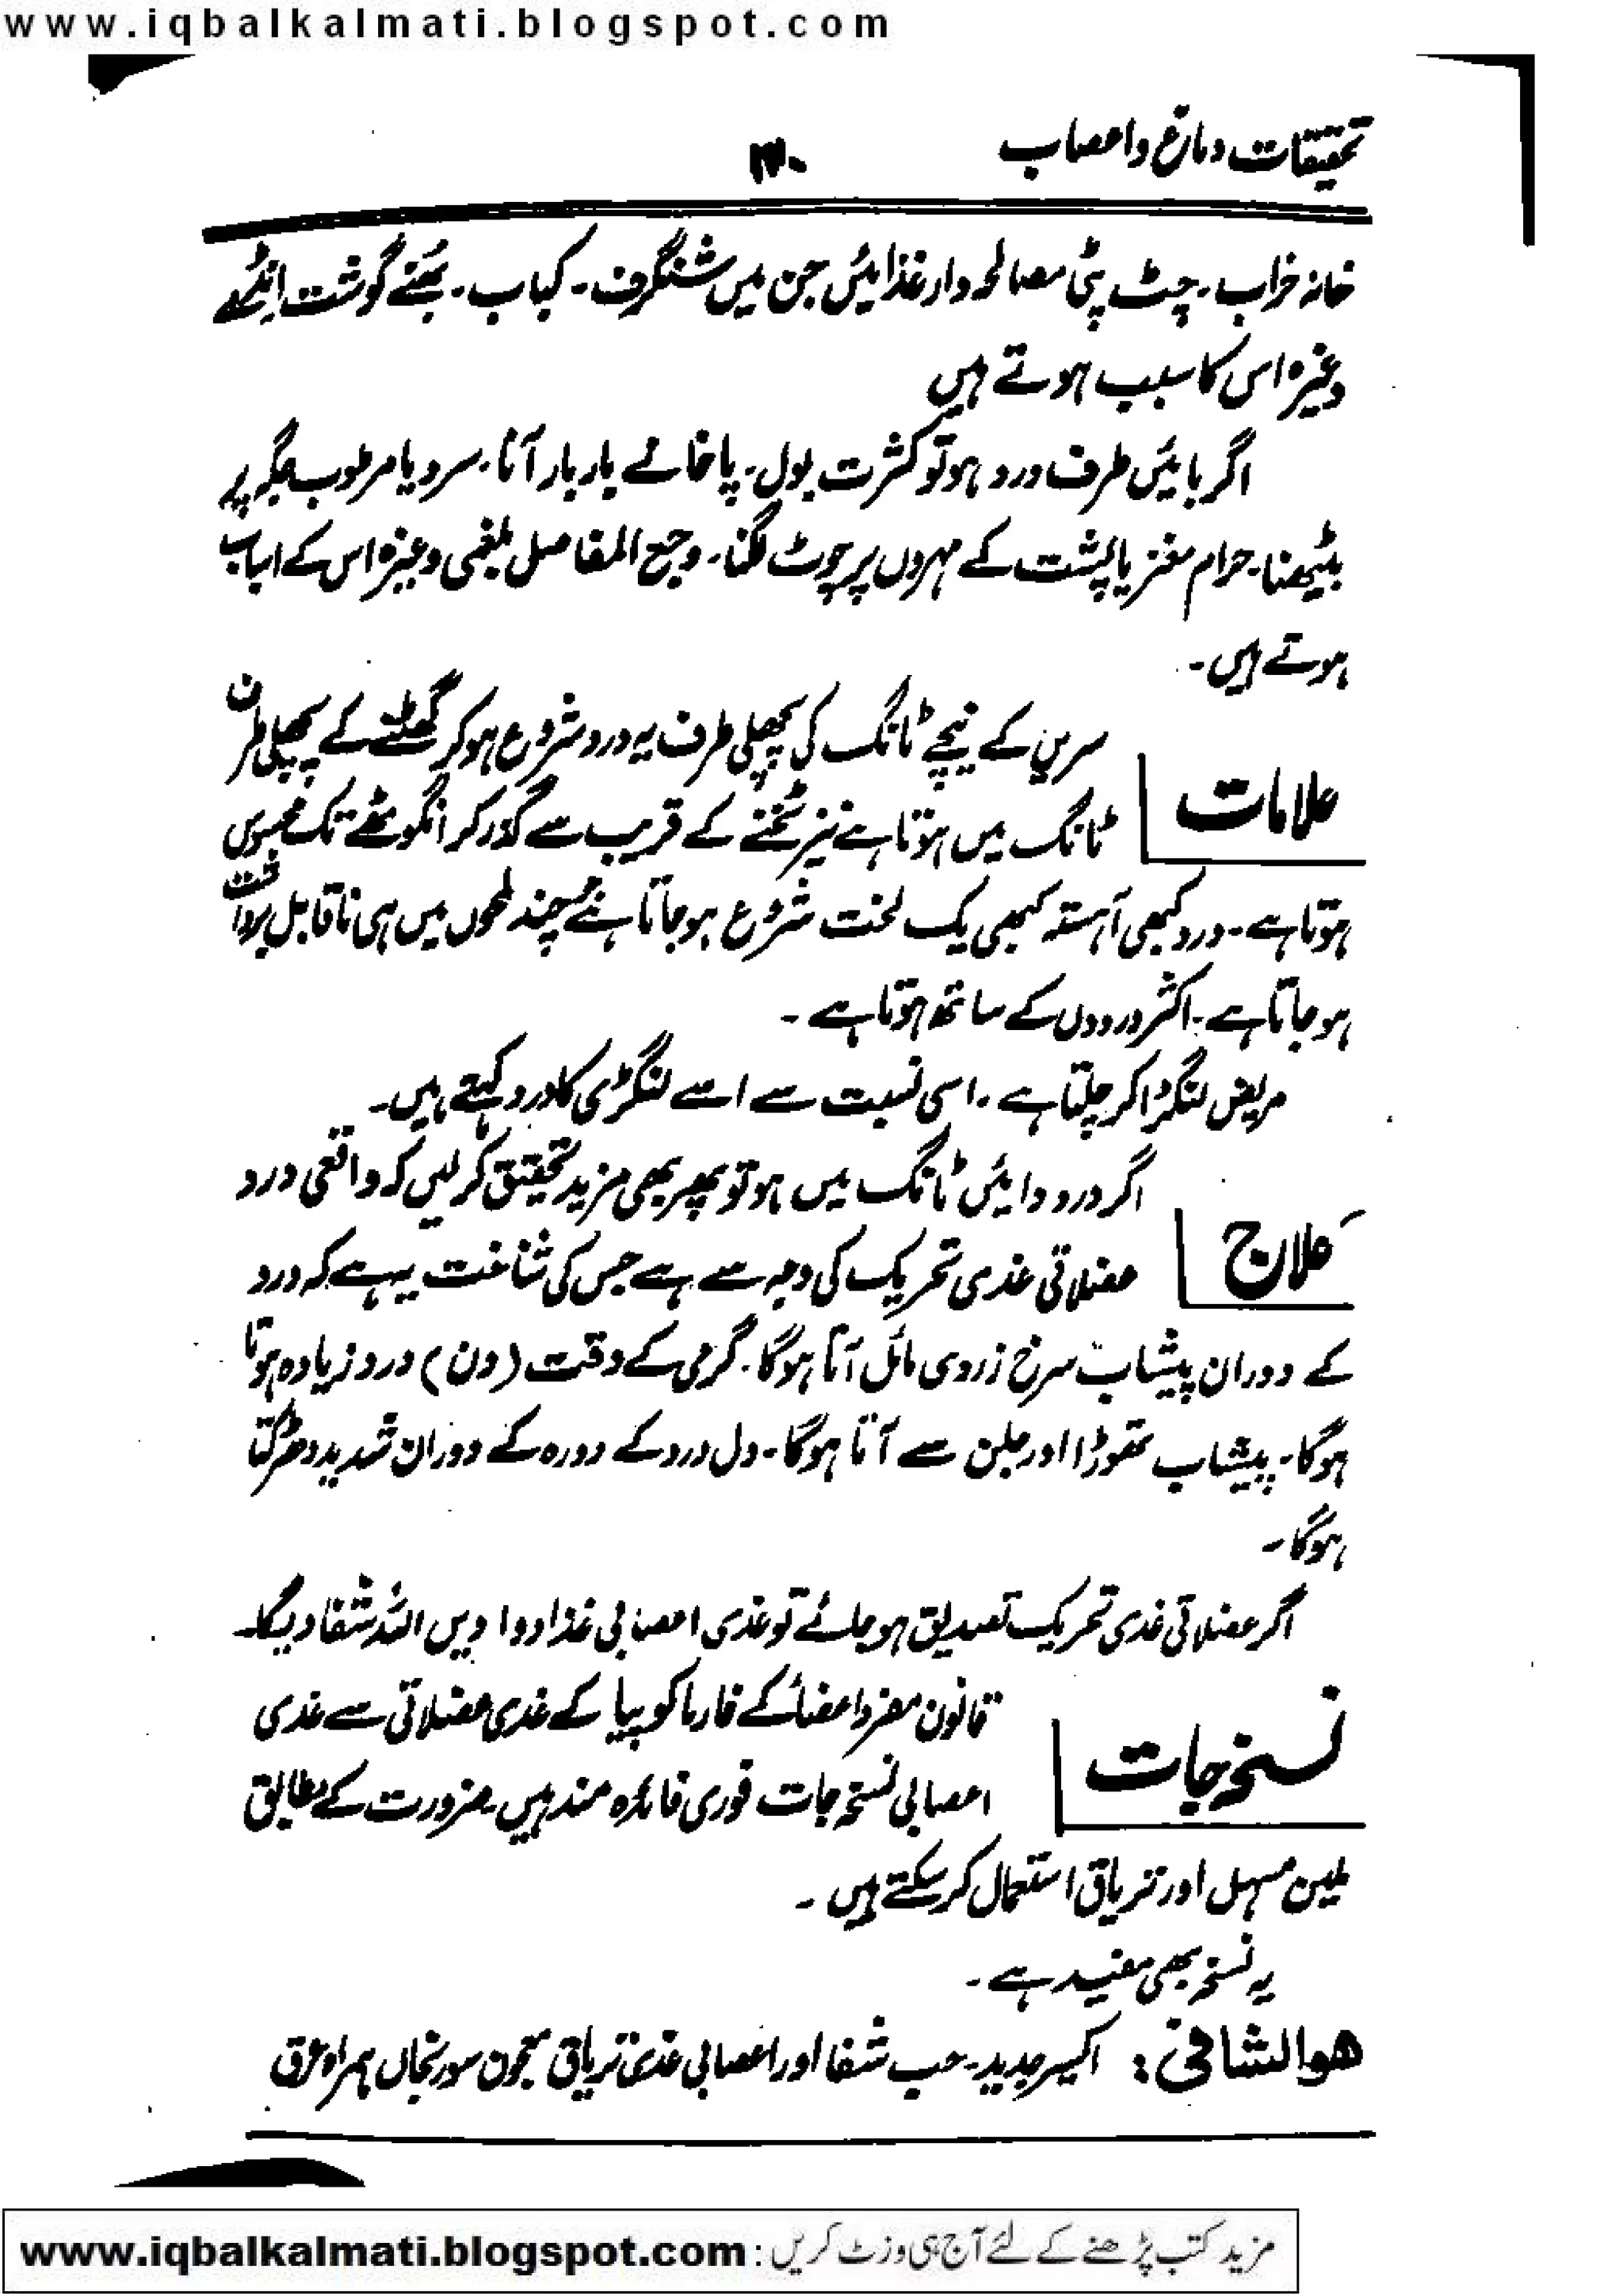 www.iqbalkalmati.blogspot.com
تحقیقات دماغ و اعصاب
خانہ خراب۔ چٹ پٹی مصالحہ دار غذائیں جن میں شنگرف۔ کباب۔ بھنے گوشت انڈے
وغیرہ اس کا سبب ہوتے ہیں
اگر بائیں طرف درد ہو تو کثرت بول۔ پاخانے بار بار آنا۔ سرد یا مرطوب جگہ پے
بیٹھنا۔ حرام مغز یا پشت کے مہروں پر چوٹ لگنا۔ وجع المفاصل بلغمی وغیرہ اس کے اسباب
ہوتے ہیں۔
علامات
سرین کے نیچے ٹانگ کی پچھلی طرف یہ درد شروع ہو کر گھٹنے کے پچھلی طرف
ٹانگ میں ہوتا ہے نیز ٹخنے کے قریب سے گذر کر انگوٹھے تک محسوس
ہوتا ہے۔ درد کبھی آہستہ کبھی یک لخت شروع ہو جاتا ہے چند لمحوں میں ہی ناقابل برداشت
ہو جاتا ہے۔ اکثر دردوں کے ساتھ ہوتا ہے۔
مریض لنگڑا کر چلتا ہے۔ اسی نسبت سے اسے لنگڑی کا درد کہتے ہیں۔
علاج
اگر درد دائیں ٹانگ میں ہو تو پھر بھی مزید تحقیق کر لیں کہ واقعی درد
عضلاتی غدی تحریک کی وجہ سے ہے جس کی شناخت یہ ہے کہ درد
کے دوران پیشاب سرخ زردی مائل آتا ہوگا۔ گرمی کے وقت (دن) درد زیادہ ہوتا
ہوگا۔ پیشاب تھوڑا اور جلن سے آتا ہوگا۔ دل درد کے دورہ کے دوران شدید دھڑکتا
ہوگا۔
اگر عضلاتی غدی تحریک تصدیق ہو جائے تو غدی اعصابی غذا دوا دیں اللہ شفا دیگا۔
نسخہ جات
قانون مفرد اعضاء کے فارماکوپیا کے غدی عضلاتی سے غدی
اعصابی نسخہ جات فوری فائدہ مند ہیں۔ ضرورت کے مطابق
ملین مسہل اور تریاق استعمال کر سکتے ہیں۔
یہ نسخہ بھی مفید ہے۔
ھوالشافی: اکسیر جدید۔ حب شفا اور اعصابی غدی تریاق معجون سورنجاں ہمراہ عرق
مزید کتب پڑھنے کے لئے آج ہی وزٹ کریں : www.iqbalkalmati.blogspot.com